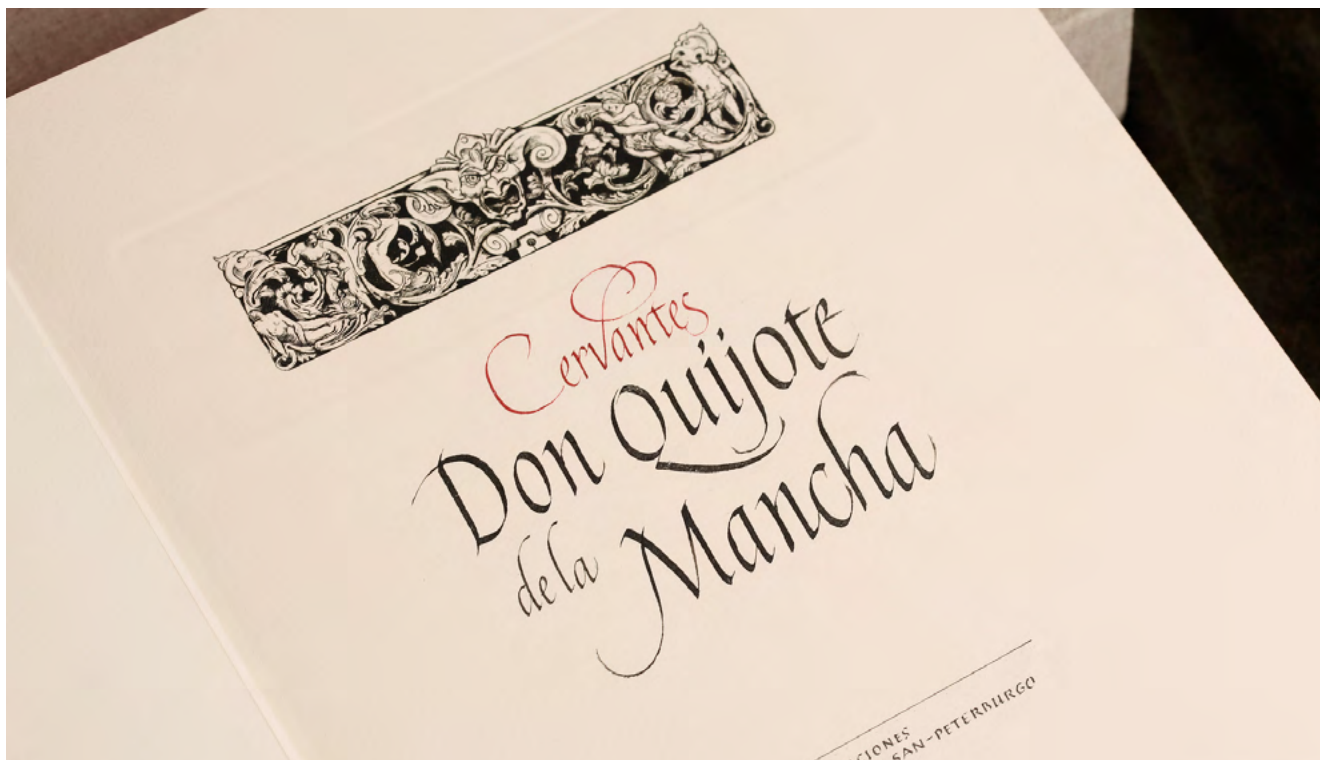 Cervantes
Don Quijote
de la Mancha
SAN-PETERBURGO